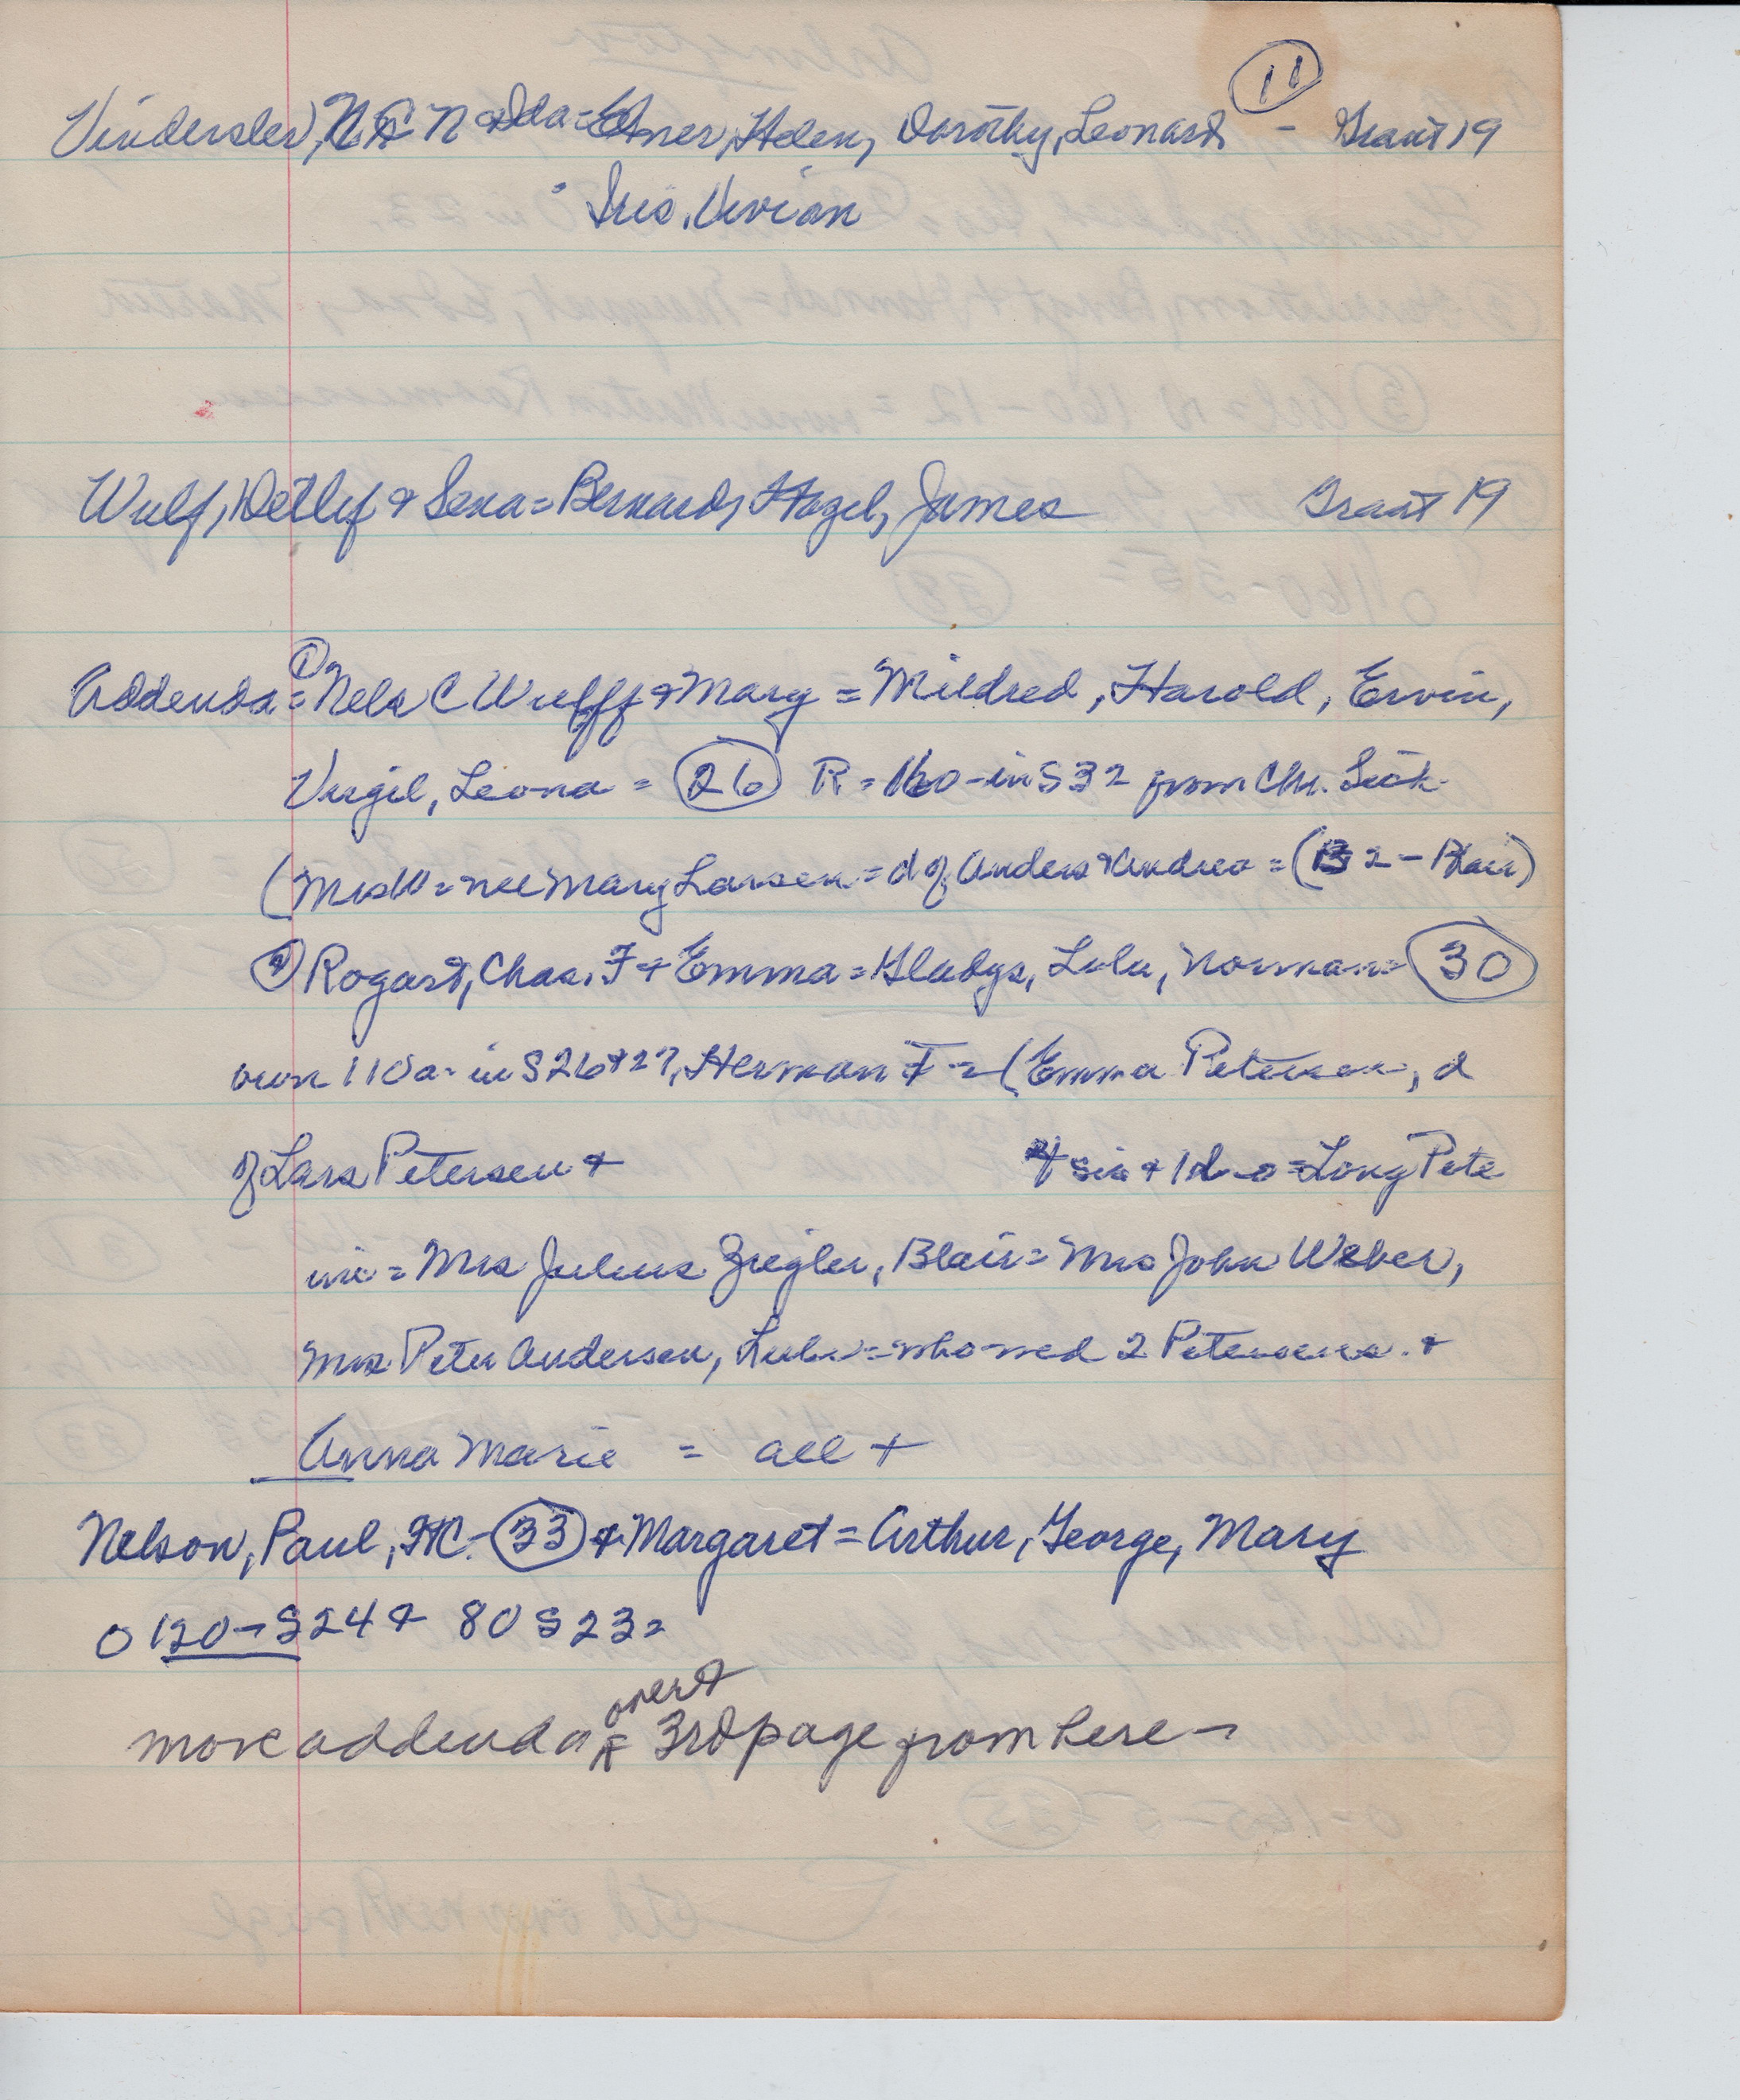 11
Vinderslev, N C N & Ida = Elmer, Helen, Dorothy, Leonard - Grant 19
Iris, Vivian
Wulf, Detlef & Sena = Bernard, Hazel, James Grant 19
Addenda = ① Nels C Wulff & Mary = Mildred, Harold, Ervin,
Virgil, Leona = 26 R = 160 - in S 32 from Chr.
(Mrs W = nee Mary Larsen = d of Anders & Andrea = (B 2 - Blair)
② Rogast, Chas. F + Emma = Gladys, Lulu, Norman = 30
own 110 a - in S 26 & 27, Herman F = (Emma Petersen, d
of Lars Petersen & 4 sis & 1 d - o = Long Pete
= Mrs Julius Ziegler, Blair = Mrs John Weber,
Mrs Peter Andersen, = who wed 2 Petersens. &
Anna Marie = all +
Nelson, Paul, HC - 33 & Margaret = Arthur, George, Mary
O 120 - S 24 & 80 S 23 =
over
more addenda 3rd page from here -